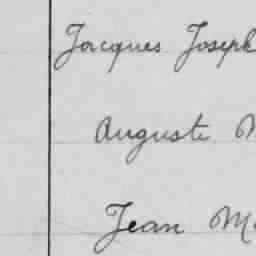 Jacques Joseph
Auguste M
Jean Ma